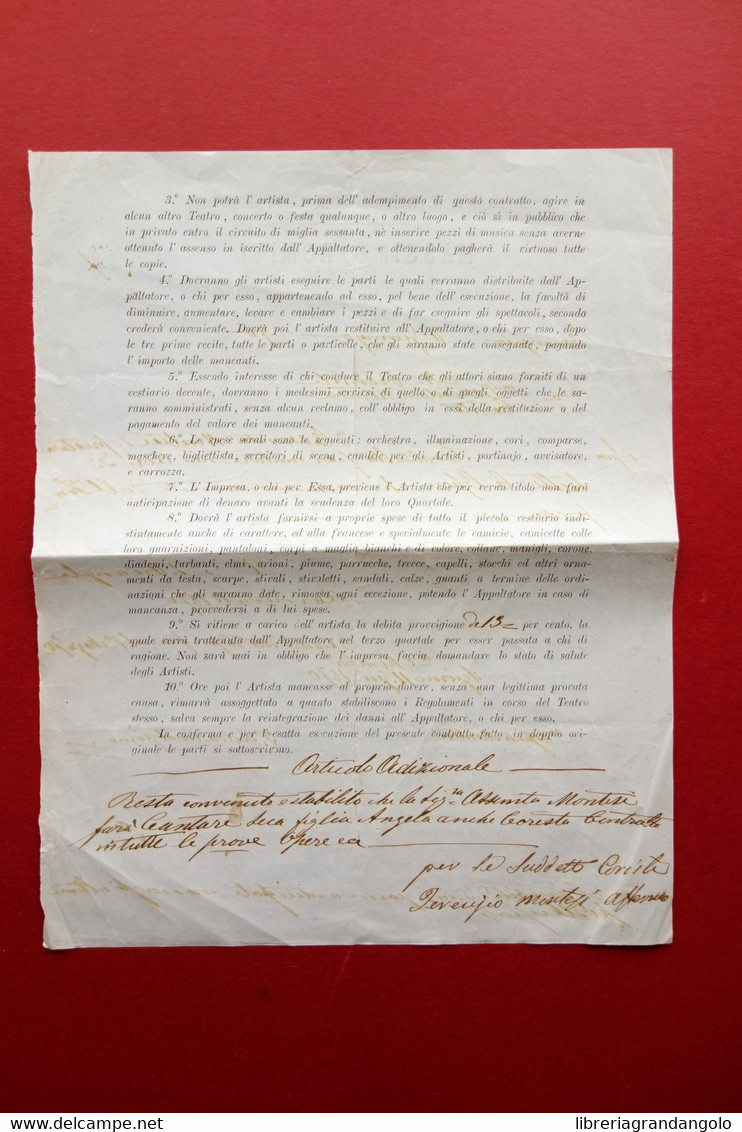 3.º Non potrà l'artista, prima dell'adempimento di questo contratto, agire in
alcun altro Teatro, concerto o festa qualunque, o altro luogo, e ciò sì in pubblico che
in privato entro il circuito di miglia sessanta, nè inserire pezzi di musica senza averne
ottenuto l'assenso in iscritto dall'Appaltatore, e ottenendolo pagherà il virtuoso tutte
le copie.
4.º Dovranno gli artisti eseguire le parti le quali verranno distribuite dall'Ap-
paltatore, o chi per esso, appartenendo ad esso, pel bene dell'esecuzione, la facoltà di
diminuire, aumentare, levare e cambiare i pezzi e di far eseguire gli spettacoli, secondo
crederà conveniente. Dovrà poi l'artista restituire all'Appaltatore, o chi per esso, dopo
le tre prime recite, tutte le parti o particelle, che gli saranno state consegnate, pagando
l'importo delle mancanti.
5.º Essendo interesse di chi conduce il Teatro che gli attori siano forniti di un
vestiario decente, dovranno i medesimi servirsi di quello o di quegli oggetti che le sa-
ranno somministrati, senza alcun reclamo, coll'obbligo in essi della restituzione o del
pagamento del valore dei mancanti.
6.º Le spese serali sono le seguenti: orchestra, illuminazione, cori, comparse,
maschere, bigliettista, servitori di scena, candele per gli Artisti, portinajo, avvisatore,
e carrozza.
7.º L'Impresa, o chi per Essa, previene l'Artista che per verun titolo non farà
anticipazione di denaro avanti la scadenza del loro Quartale.
8.º Dovrà l'artista fornirsi a proprie spese di tutto il piccolo vestiario indi-
stintamente anche di carattere, ed alla francese e specialmente le camicie, camicette colle
loro guarnizioni, pantaloni, corpi a maglia bianchi e di colore, collane, manigli, corone,
diademi, turbanti, elmi, arioni, piume, parrucche, trecce, capelli, stocchi ed altri orna-
menti da testa, scarpe, stivali, stivaletti, sandali, calze, guanti a termine delle ordi-
nazioni che gli saranno date, rimossa ogni eccezione, potendo l'Appaltatore in caso di
mancanza, provvedersi a di lui spese.
9.º Si ritiene a carico dell'artista la debita provvigione de 13 per cento, la
quale verrà trattenuta dall'Appaltatore nel terzo quartale per esser passata a chi di
ragione. Non sarà mai in obbligo che l'impresa faccia domandare lo stato di salute
degli Artisti.
10.º Ove poi l'Artista mancasse al proprio dovere, senza una legittima provata
causa, rimarrà assoggettato a quanto stabiliscono i Regolamenti in corso del Teatro
stesso, salva sempre la reintegrazione dei danni all'Appaltatore, o chi per esso.
In conferma e per l'esatta esecuzione del presente contratto fatto in doppio ori-
ginale le parti si sottoscrivono.
Articolo Adizionale
Resta convenuto e stabilito che la Sig.ra Assunta Montesi
farà Cantare sua figlia Angela anche Corista Contralto
in tutte le prove Opere ca
per le Suddette Coriste
Montesi
www.delcampe.net
libreriagrandangolo